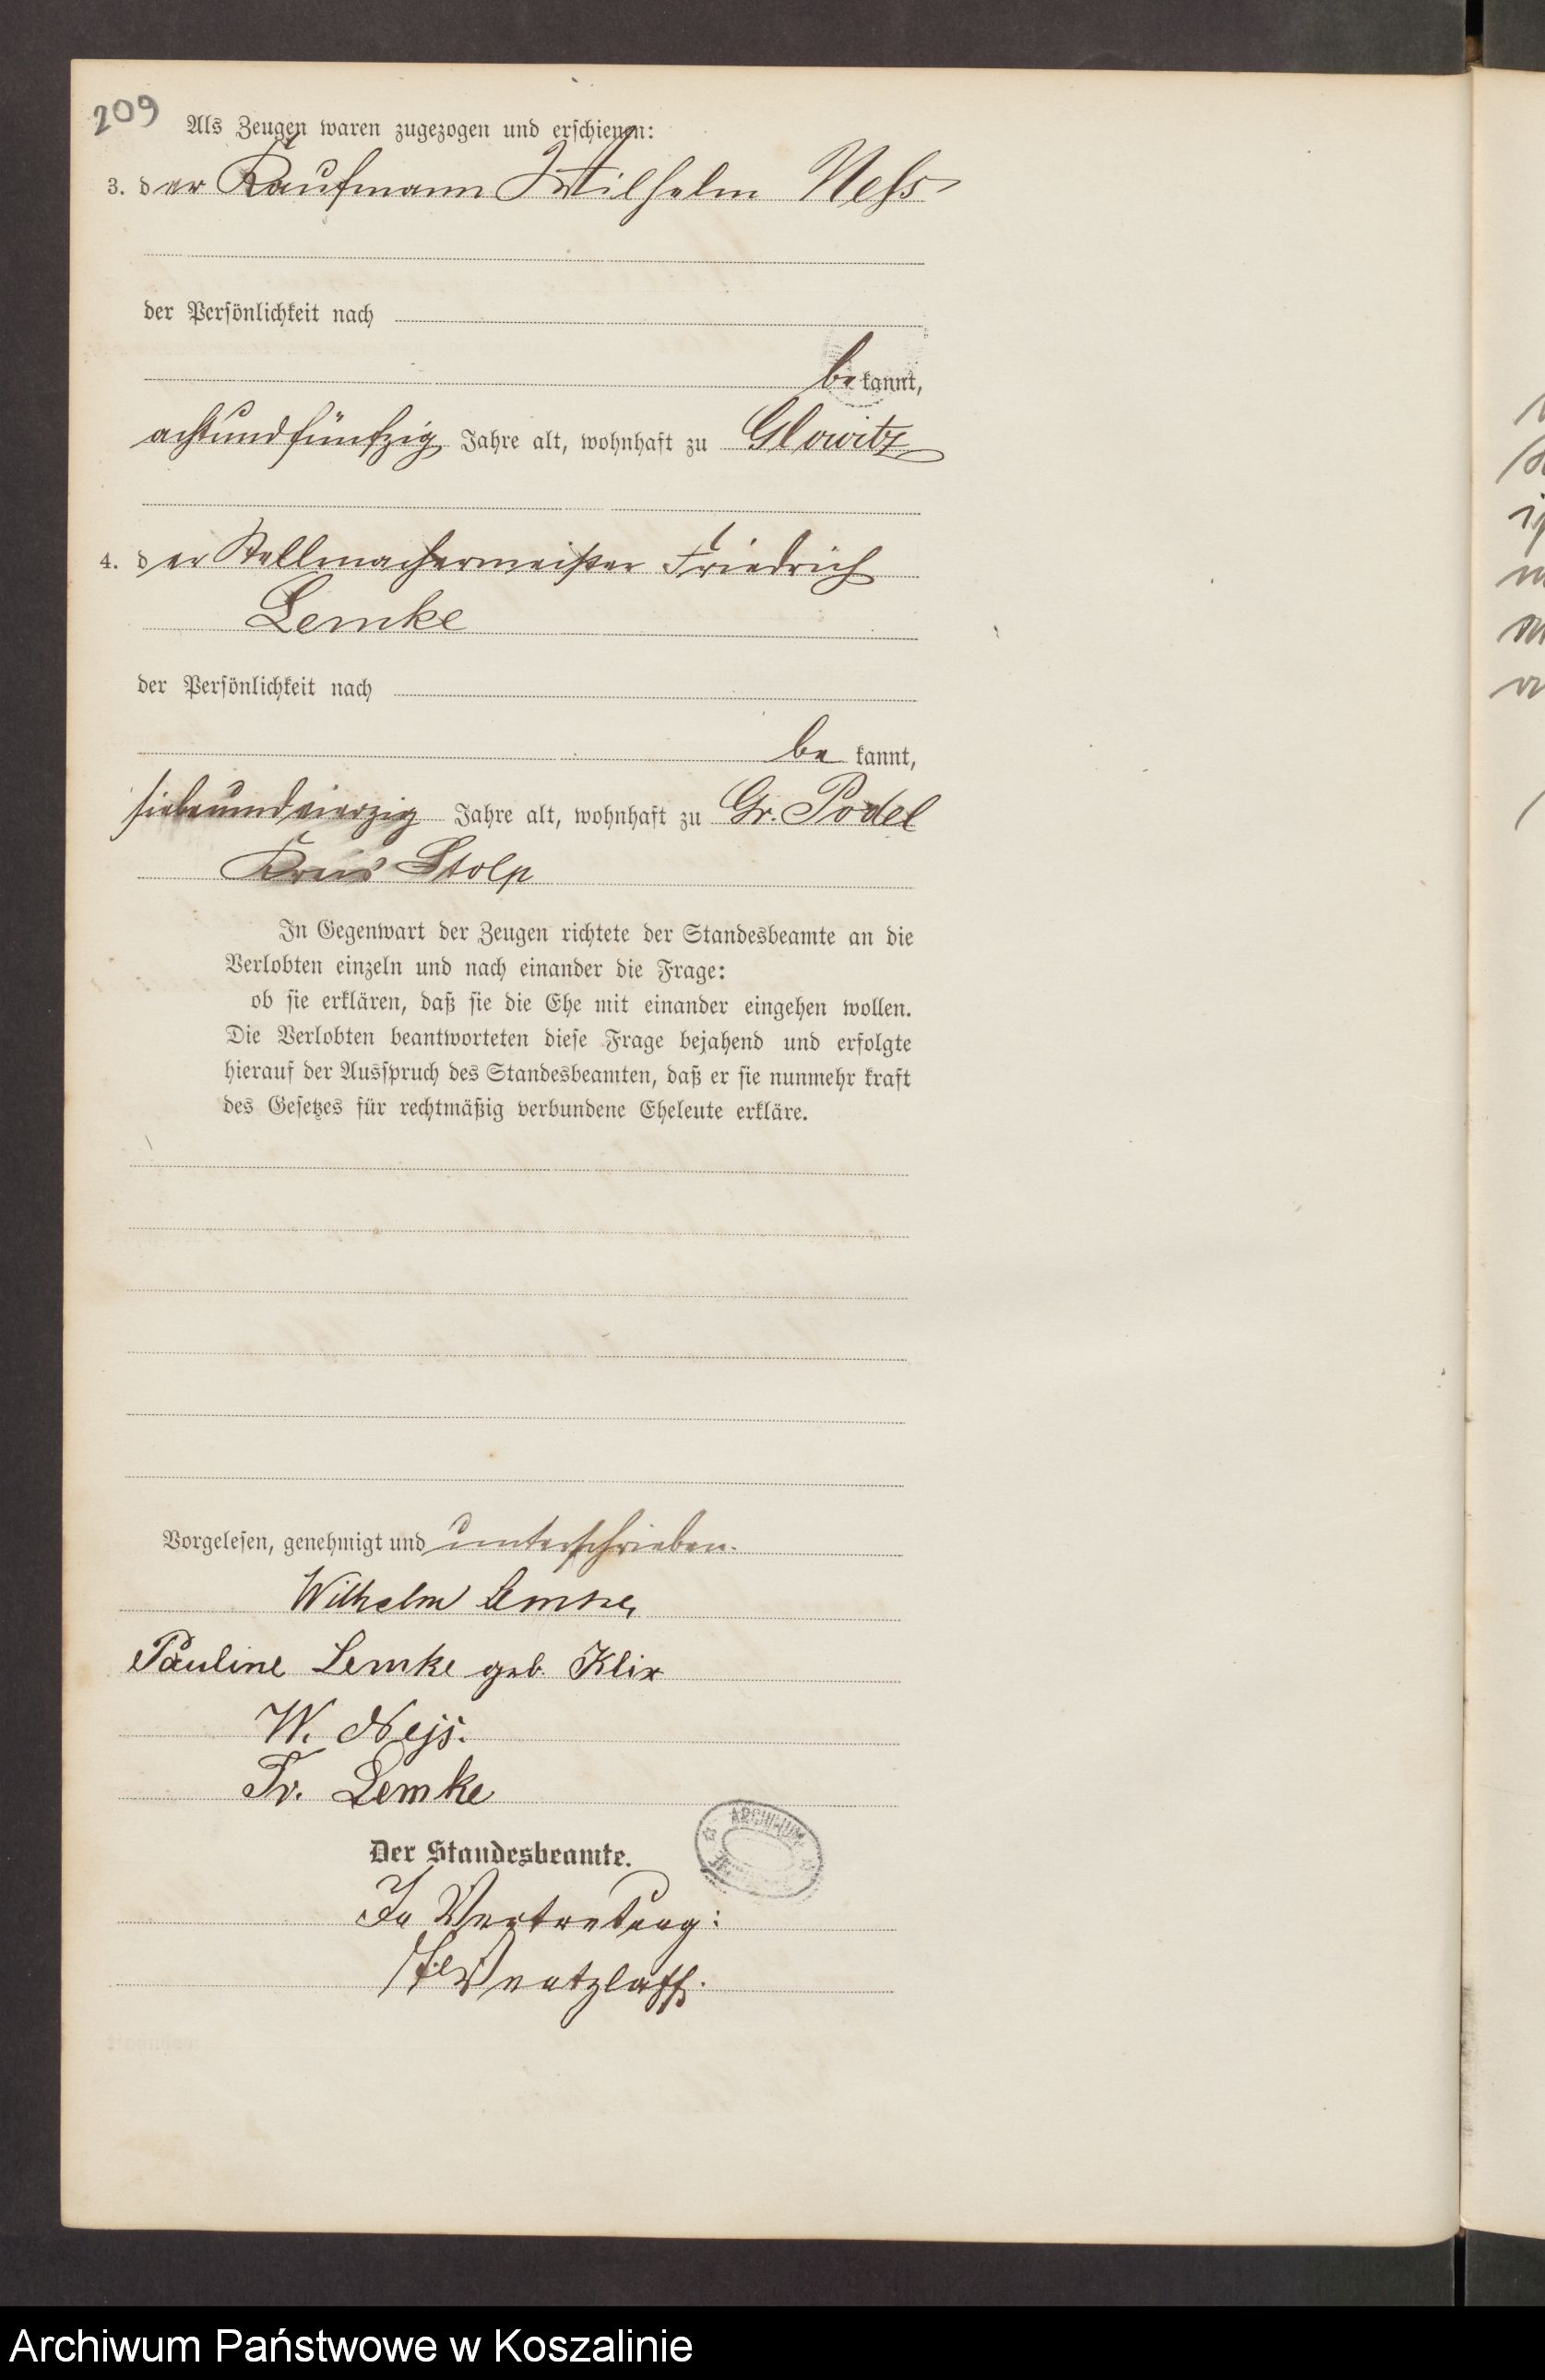 209
Als Zeugen waren zugezogen und erschienen:
3. der Kaufmann Wilhelm Ness
der Persönlichkeit nach
bekannt,
achtundfünfzig Jahre alt, wohnhaft zu Glowitz
4. der Stellmachermeister Friedrich
Lemke
der Persönlichkeit nach
be kannt,
siebenundvierzig Jahre alt, wohnhaft zu Gr. Podel
Kreis Stolp
In Gegenwart der Zeugen richtete der Standesbeamte an die
Verlobten einzeln und nach einander die Frage:
ob sie erklären, daß sie die Ehe mit einander eingehen wollen.
Die Verlobten beantworteten diese Frage bejahend und erfolgte
hierauf der Ausspruch des Standesbeamten, daß er sie nunmehr kraft
des Gesetzes für rechtmäßig verbundene Eheleute erkläre.
Vorgelesen, genehmigt und unterschrieben.
Wilhelm Lemke
Pauline Lemke geb. Klix
W. Nejs.
Fr. Lemke
Der Standesbeamte.
ARCHIWUM
In Vertretung:
Wentzlaff.
Archiwum Państwowe w Koszalinie